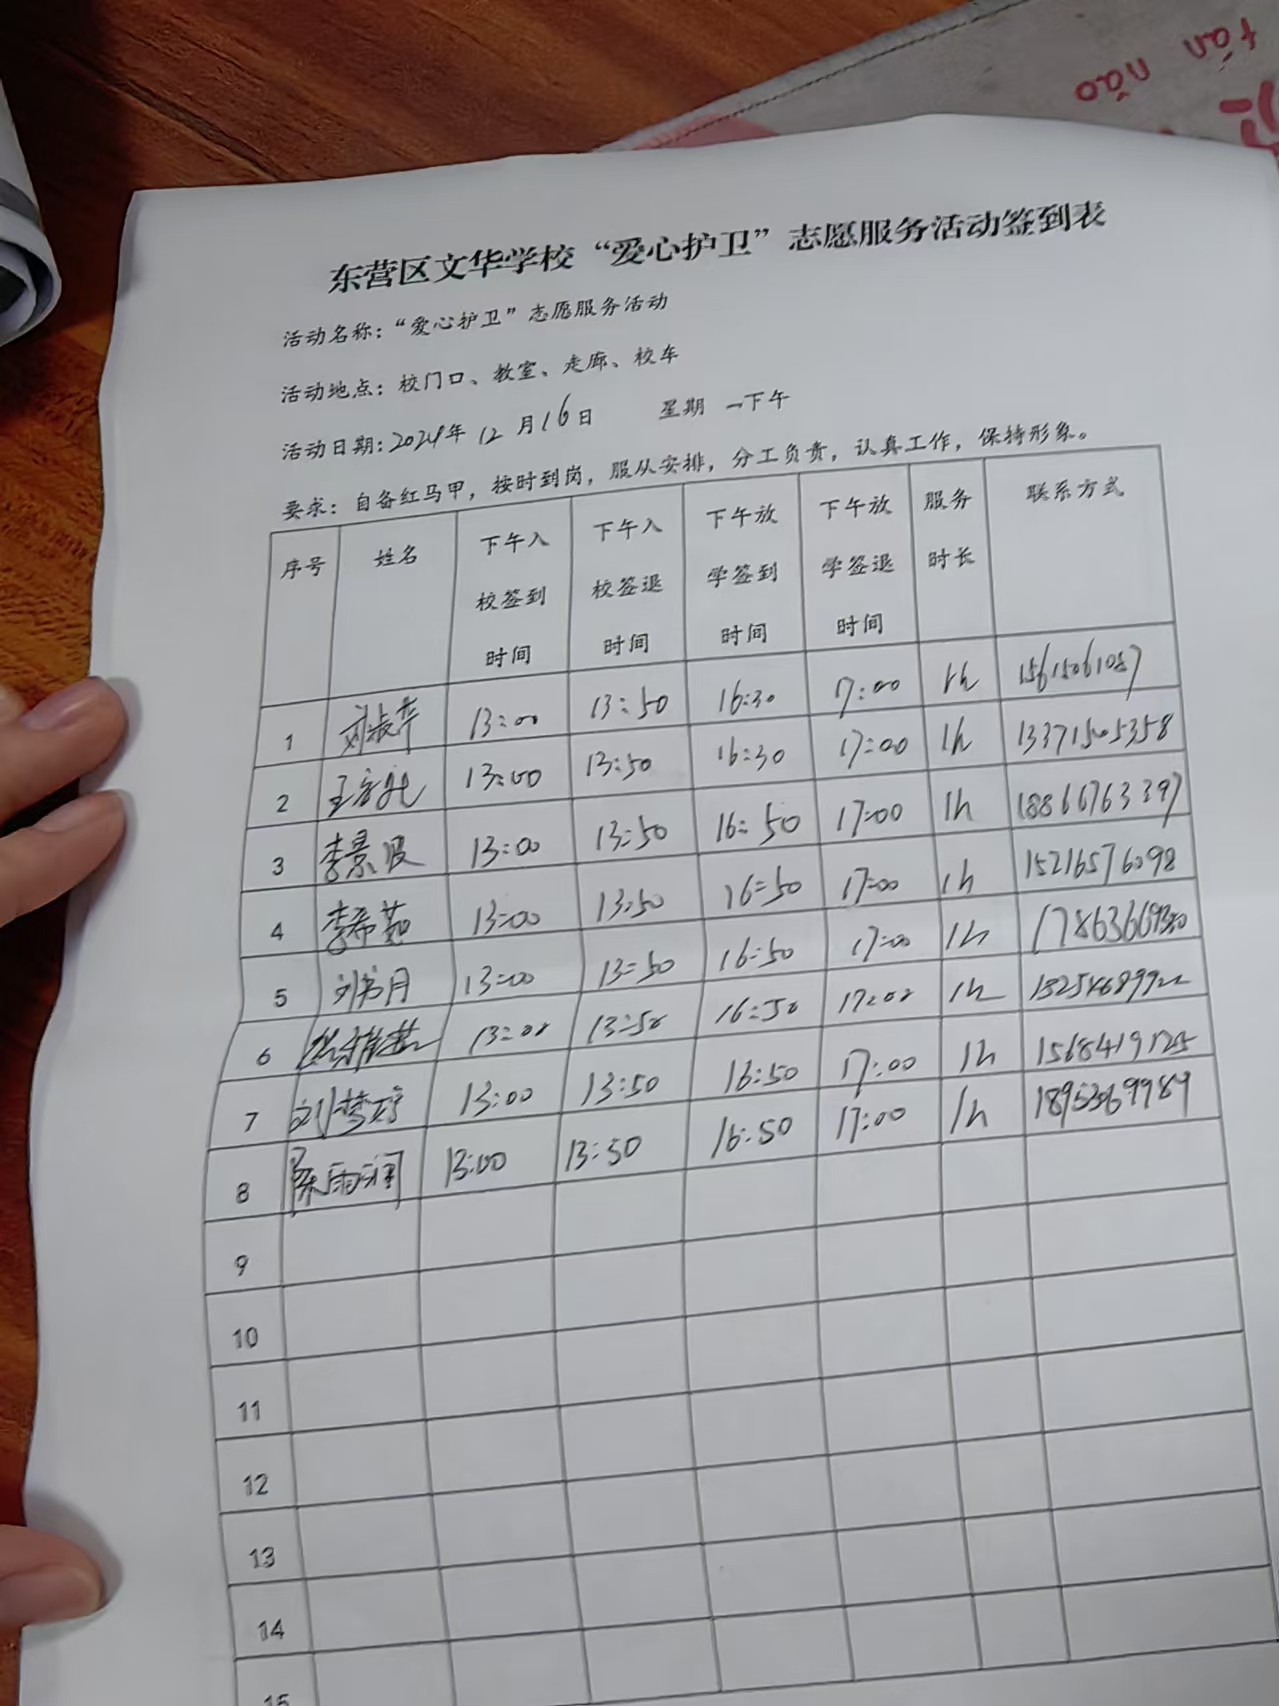 tán nǎo
东营区文华学校“爱心护卫”志愿服务活动签到表
活动名称：“爱心护卫”志愿服务活动
活动地点：校门口、教室、走廊、校车
活动日期：2024年 12 月16日 星期 一下午
要求：自备红马甲，按时到岗，服从安排，分工负责，认真工作，保持形象。
序号 姓名 下午入校签到时间 下午入校签退时间 下午放学签到时间 下午放学签退时间 服务时长 联系方式
1 13:00 13:50 16:30 17:00 1h 15615061057
2 13:00 13:50 16:30 17:00 1h 13371505358
3 李景波 13:00 13:50 16:50 17:00 1h 18866763397
4 李希茹 13:00 13:50 16:50 17:00 1h 15216576098
5 刘书月 13:00 13:50 16:50 17:00 1h
6 13:00 13:50 16:50 17:00 1h
7 刘梦婷 13:00 13:50 16:50 17:00 1h 15684191725
8 陈雨润 13:00 13:50 16:50 17:00 1h 18953669989
9
10
11
12
13
14
15